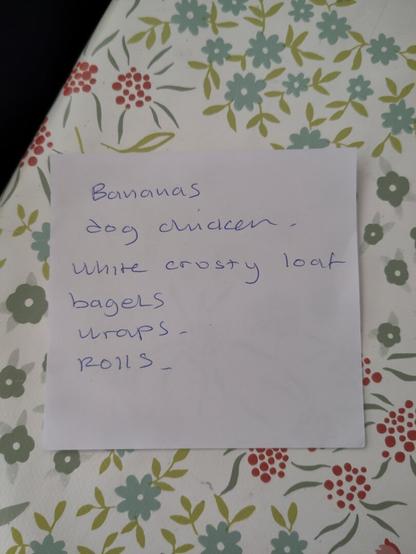 Bananas
dog chicken.
white crosty loaf
bagels
wraps.
Rolls.